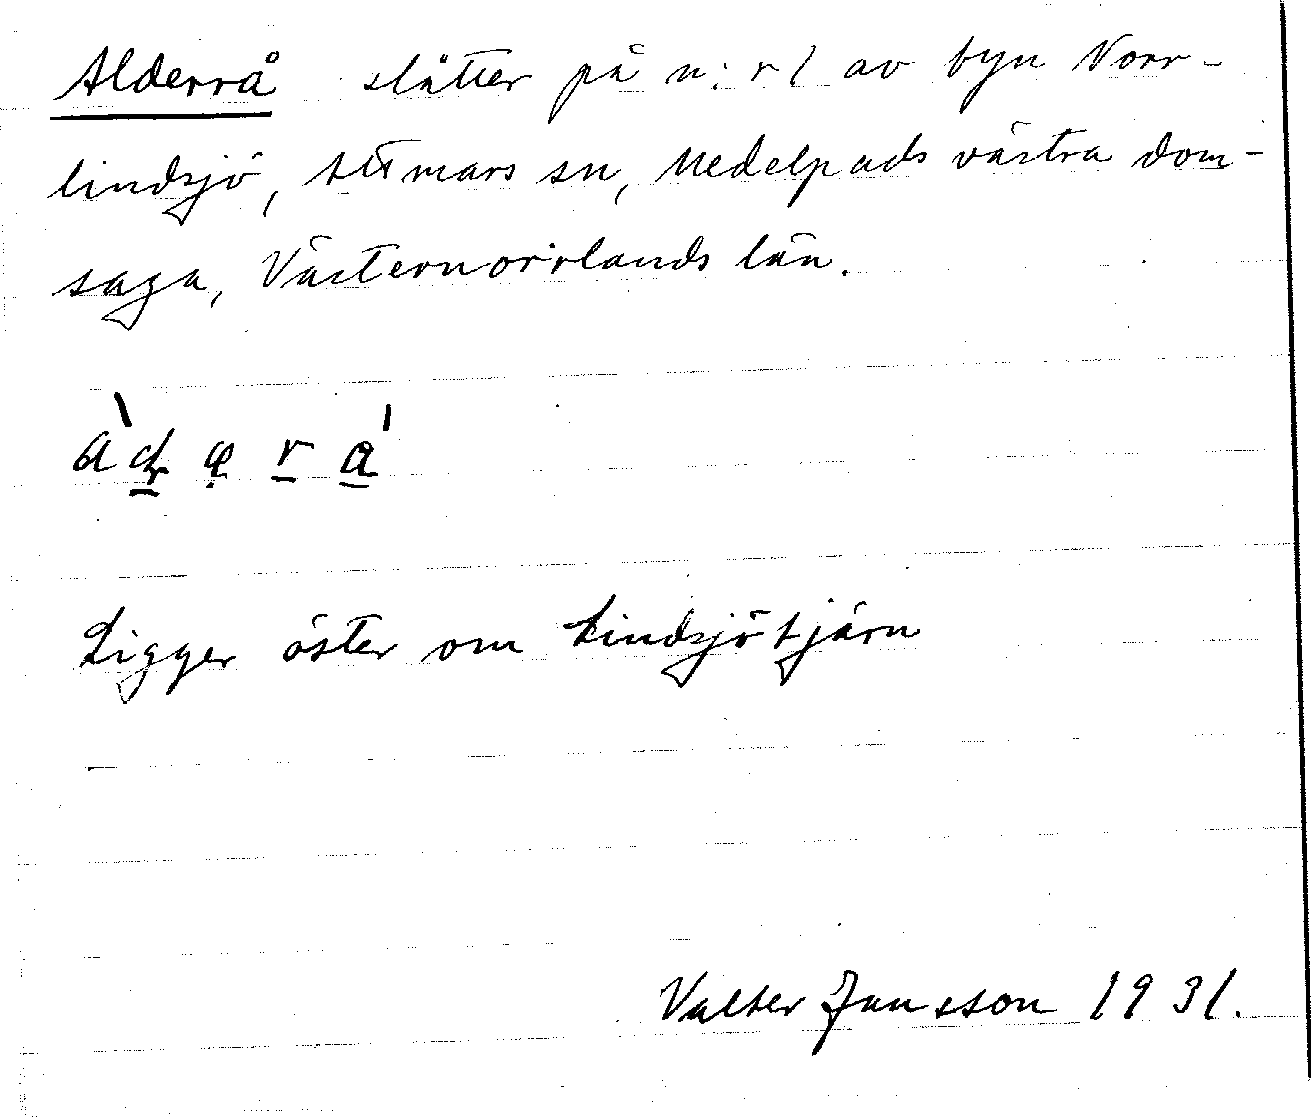 Alderrå slåtter på n:r 1 av byn Norr-
lindsjö, Attmars sn, Medelpads västra dom-
saga, Västernorrlands län.
Ligger öster om Lindsjötjärn
Valter Jansson 1931.